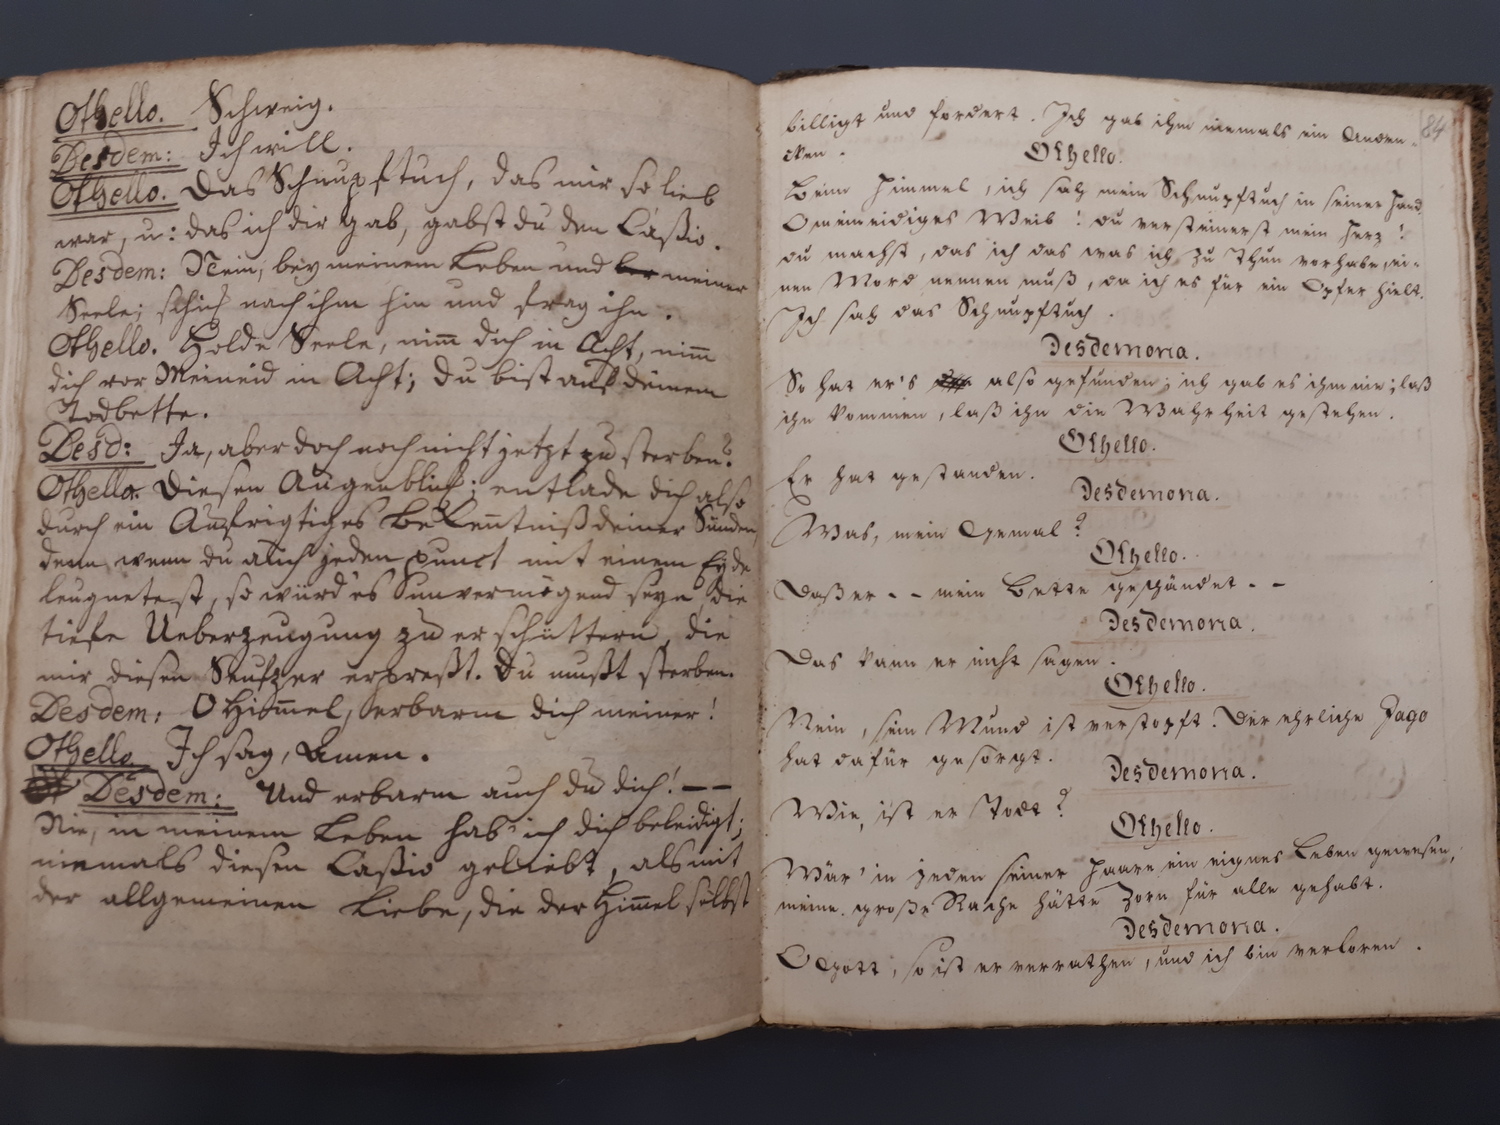 Othello. Schweig.
Desdem: Ich will.
Othello. Das Schnupftuch, das mir so lieb
war, u: das ich dir gab, gabst du den Caßio.
Desdem: Nein, bey meinem Leben und ber meiner
Seele; schick nach ihm hin und frag ihn.
Othello. Holde Seele, nim̅ dich in Acht, nim̅
dich vor Meineid in Acht; du bist auf deinem
Todbette.
Desd: Ja, aber doch noch nicht jetzt zu sterben?
Othello. Diesen Augenblick; entlade dich also
durch ein Aufrigtiges Bekenntniß deiner Sünden,
denn wenn du auch jeden punct mit einem Eyde
leugnetest, so würd es unvermögend seyn, die
tiefe Ueberzeugung zu erschüttern, die
mir diesen Seufzer erpreßt. Du mußt sterben.
Desdem: O Him̅el, erbarm dich meiner!
Othello. Ich sag, Amen.
Desdem: Und erbarm auch du dich! – –
Nie, in meinem Leben hab' ich dich beleidigt;
niemals diesen Caßio geliebt, als mit
der allgemeinen Liebe, die der Him̅el selbst
84
billigt und fordert. Ich gab ihm niemals ein Anden-
cken.
Othello.
Beim Himmel, ich sah mein Schnupftuch in seiner Hand.
O meineidiges Weib! du versteinerst mein Herz!
du machst, das ich das was ich zu Thun vorhabe, ei-
nen Mord nennen muß, da ich es für ein Opfer hielt.
Ich sah das Schnupftuch.
Desdemona.
So hat er's also gefunden; ich gab es ihm nie; laß
ihn kommen, laß ihn die Wahrheit gestehen.
Othello.
Er hat gestanden.
Desdemona.
Was, mein Gemal?
Othello.
Daß er - - mein Bette geschändet - -
Desdemona.
Das kann er nicht sagen.
Othello.
Nein, sein Mund ist verstopft. Der ehrliche Jago
hat dafür gesorgt.
Desdemona.
Wie, ist er Todt?
Othello.
Wär' in jeden seiner Haare ein eignes Leben gewesen,
meine große Rache hätte Zorn für alle gehabt.
Desdemona.
O Gott, so ist er verrathen, und ich bin verloren.